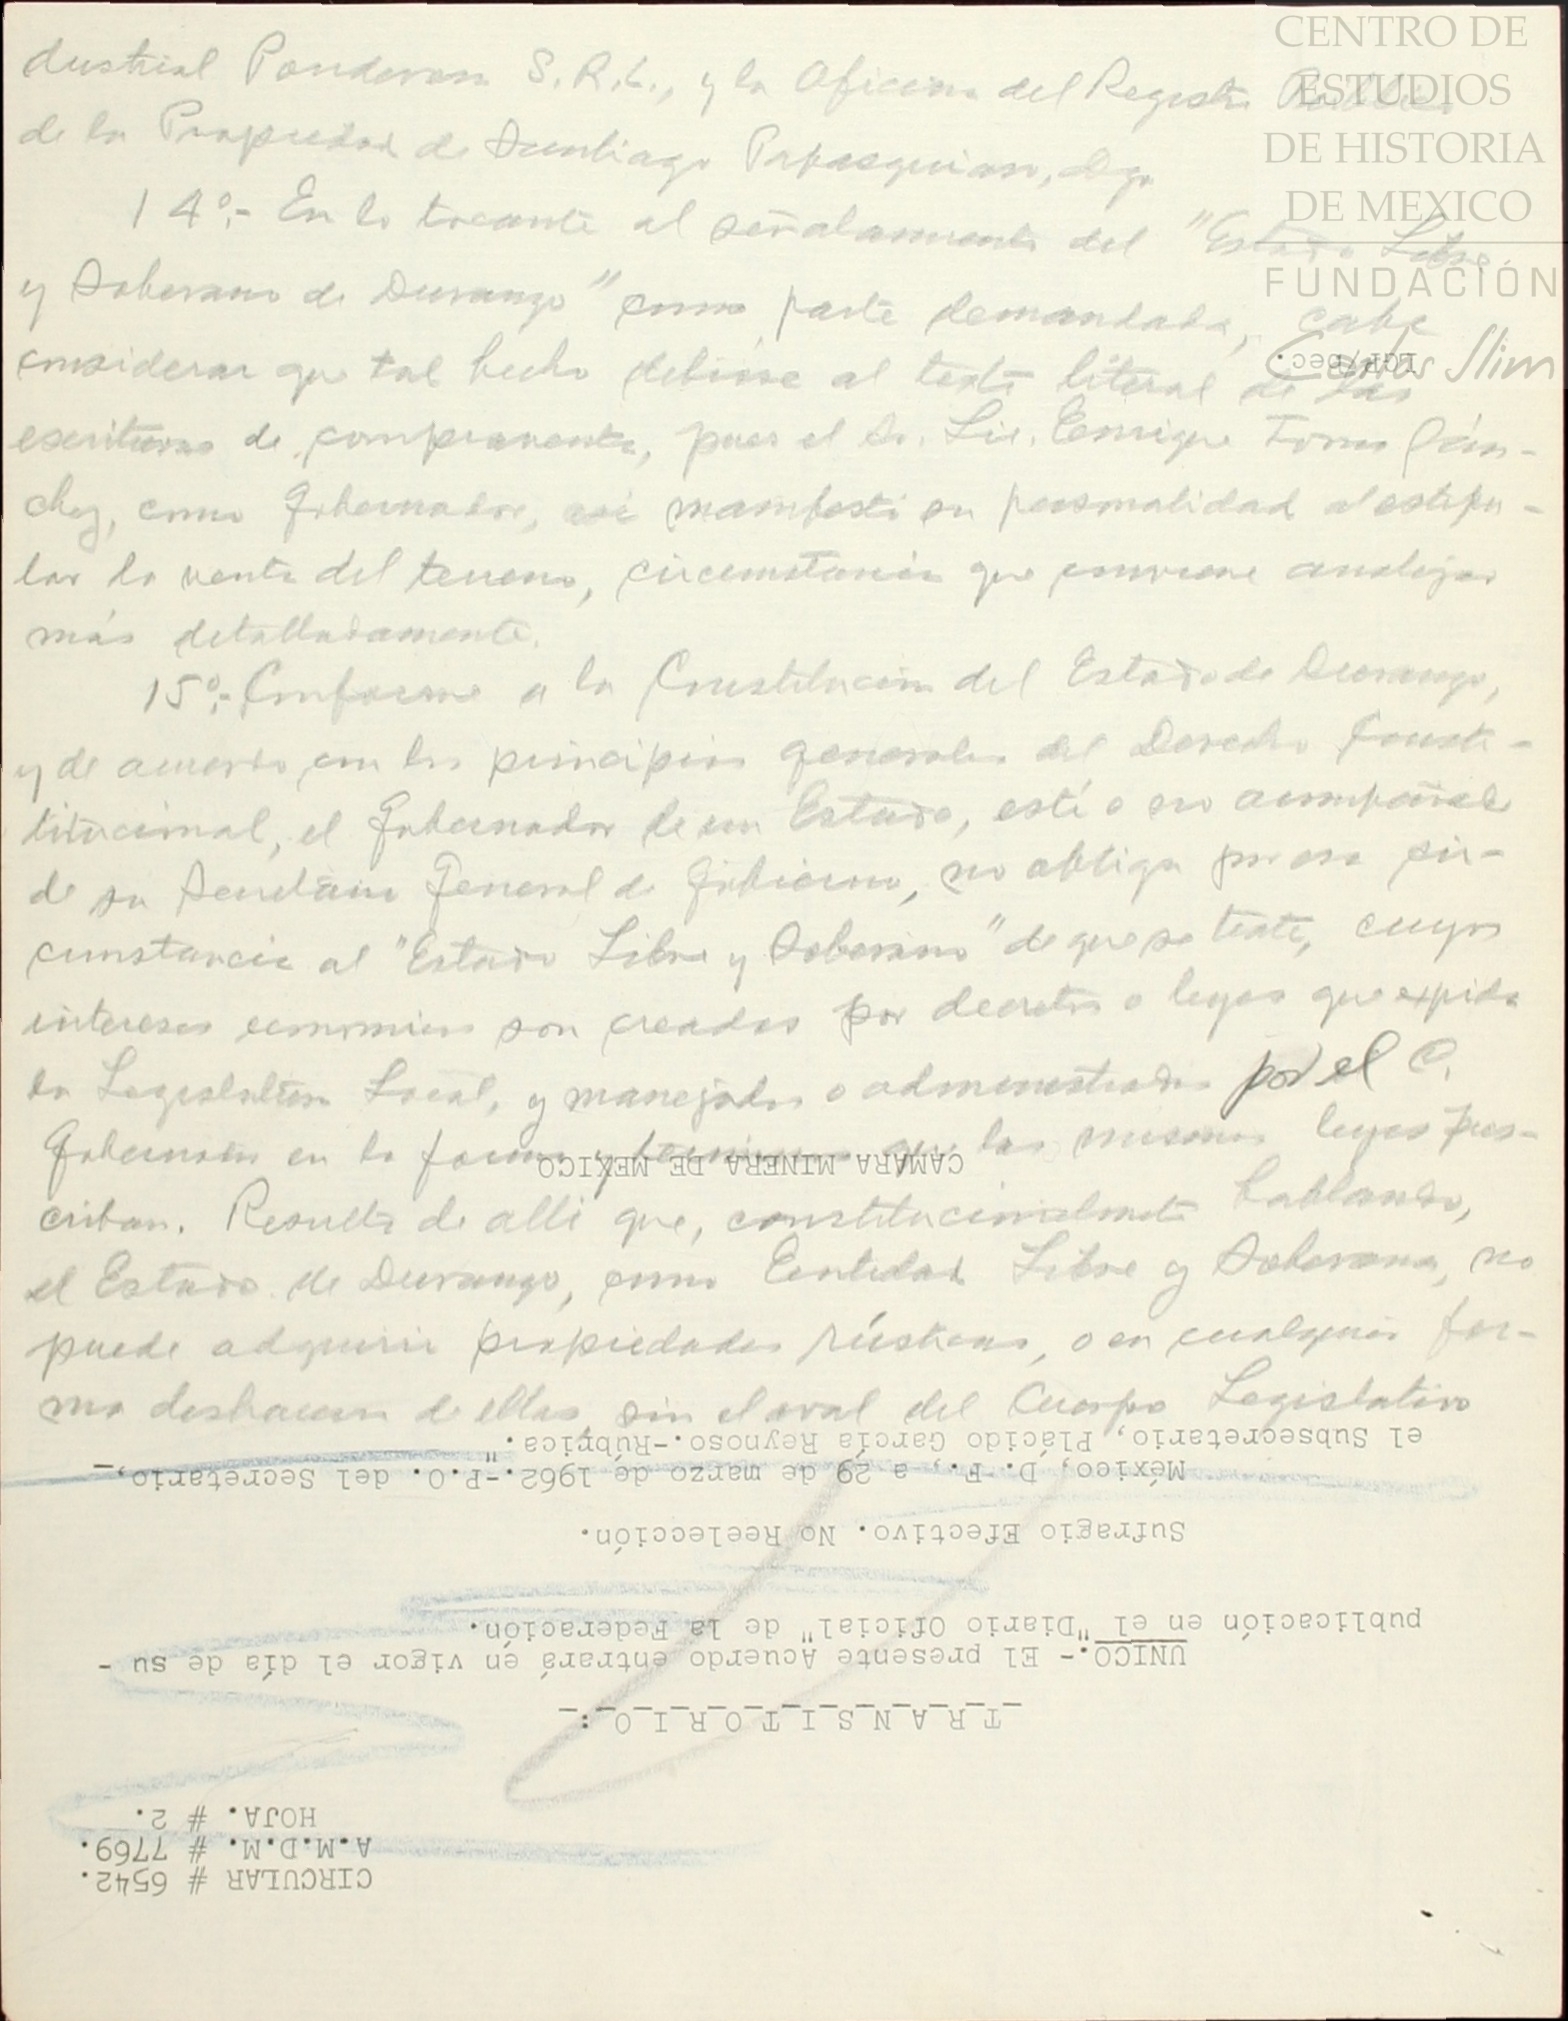 dustrial Ponderosa S.R.L., y la Oficina del Registro Público
de la Propiedad de Santiago Papasquiaro, Dgo.
14º.- En lo tocante al señalamiento del "Estado Libre
y Soberano de Durango" como parte demandada, cabe
considerar que tal hecho debióse al texto literal de las
escrituras de compraventa, pues el Sr. Lic. Enrique Torres Sán-
chez, como Gobernador, así manifestó su personalidad al estipu-
lar la venta del terreno, circunstancia que conviene analizar
más detalladamente.
15º.- Conforme a la Constitución del Estado de Durango,
y de acuerdo con los principios generales del Derecho Consti-
titucional, el Gobernador de un Estado, esté o no acompañado
de su Secretario General de Gobierno, no obliga por esa cir-
cunstancia al "Estado Libre y Soberano" de que se trate, cuyos
intereses economicos son creados por decretos o leyes que expida
la Legislatura Local, y manejados o administrados por el C.
Gobernador en la forma y terminos que las mismas leyes pres-
criban. Resulta de alli que, constitucionalmente hablando,
el Estado de Durango, como Entidad Libre y Soberana, no
puede adquirir propiedades rústicas, o en cualquier for-
ma deshacerse de ellas, sin el aval del Cuerpo Legislativo
CIRCULAR # 6542.
A.M.D.M. # 7769.
HOJA. # 2.
T R A N S I T O R I O :
UNICO.- El presente Acuerdo entrará en vigor el día de su -
publicación en el "Diario Oficial" de la Federación.
Sufragio Efectivo. No Reelección.
México, D. F., a 29 de marzo de 1962.-P.O. del Secretario,
el Subsecretario, Plácido García Reynoso.-Rúbrica."
CAMARA MINERA DE MEXICO
CENTRO DE
ESTUDIOS
DE HISTORIA
DE MEXICO
FUNDACIÓN
Carlos Slim